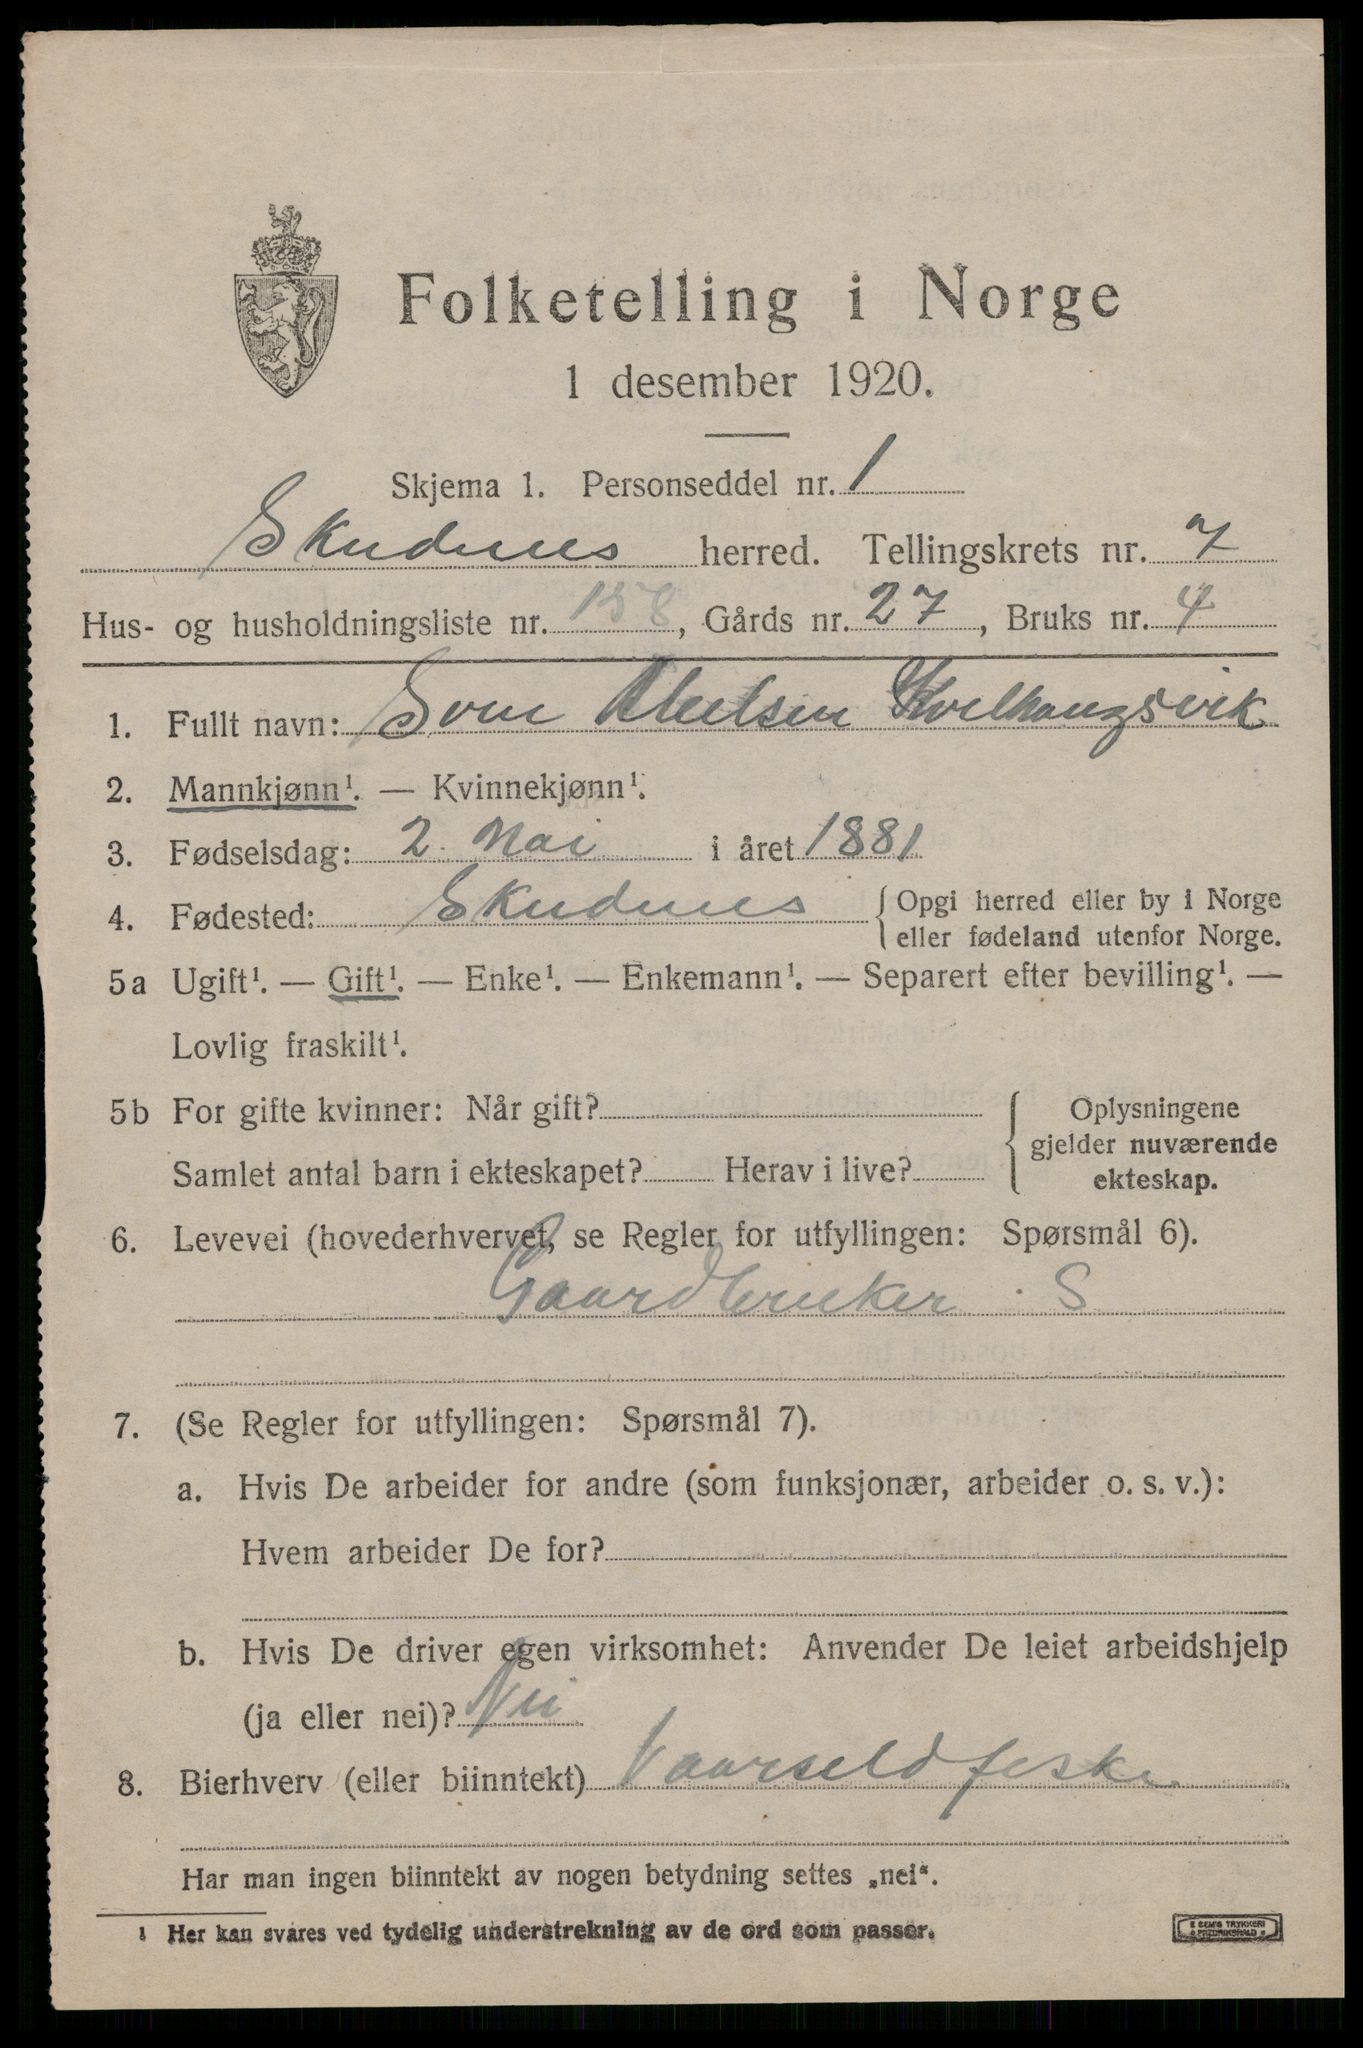 Folketelling i Norge
1 desember 1920.
Skjema 1. Personseddel nr. 1
Skudenes herred. Tellingskrets nr. 7
Hus- og husholdningsliste nr. 158, Gårds nr. 27, Bruks nr. 4
1. Fullt navn: Sven Abelsen Kvilhaugsvik
2. Mannkjønn¹. — Kvinnekjønn¹.
3. Fødselsdag: 2. Mai i året 1881
4. Fødested: Skudenes { Opgi herred eller by i Norge
eller fødeland utenfor Norge.
5a Ugift¹. — Gift¹. — Enke¹. — Enkemann¹. — Separert efter bevilling¹. —
Lovlig fraskilt¹.
5b For gifte kvinner: Når gift? { Oplysningene
gjelder nuværende
Samlet antal barn i ekteskapet? Herav i live? ekteskap.
6. Levevei (hovederhvervet, se Regler for utfyllingen: Spørsmål 6).
Gaardbruker S
7. (Se Regler for utfyllingen: Spørsmål 7).
a. Hvis De arbeider for andre (som funksjonær, arbeider o. s. v.):
Hvem arbeider De for?
b. Hvis De driver egen virksomhet: Anvender De leiet arbeidshjelp
(ja eller nei)? Nei
8. Bierhverv (eller biinntekt) Vaarseldfiske
Har man ingen biinntekt av nogen betydning settes „nei“.
¹ Her kan svares ved tydelig understrekning av de ord som passer.
E SEM'S TRYKKERI
FREDRIKSHALD